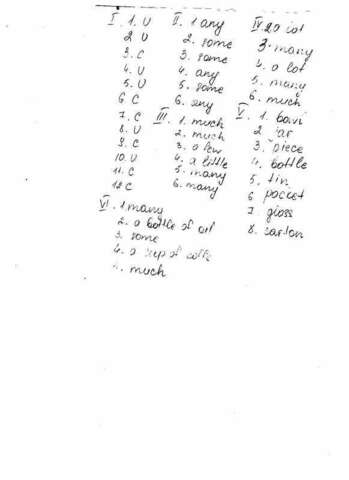 I. 1. U
2. U
3. C
4. U
5. U
6 C
7. C
8. U
9. C
10. U
11. C
12 C
II. 1 any
2. some
3. some
4. any
5. some
6. any
III. 1. much
2. much
3. a few
4. a little
5. many
6. many
IV. 2 a lot
3. many
4. a lot
5. many
6. much
V. 1. bowl
2 jar
3. piece
4. bottle
5. tin
6 packet
7 glass
8. carton
VI. 1 many
2. a bottle of oil
3. some
4. a cup of
much